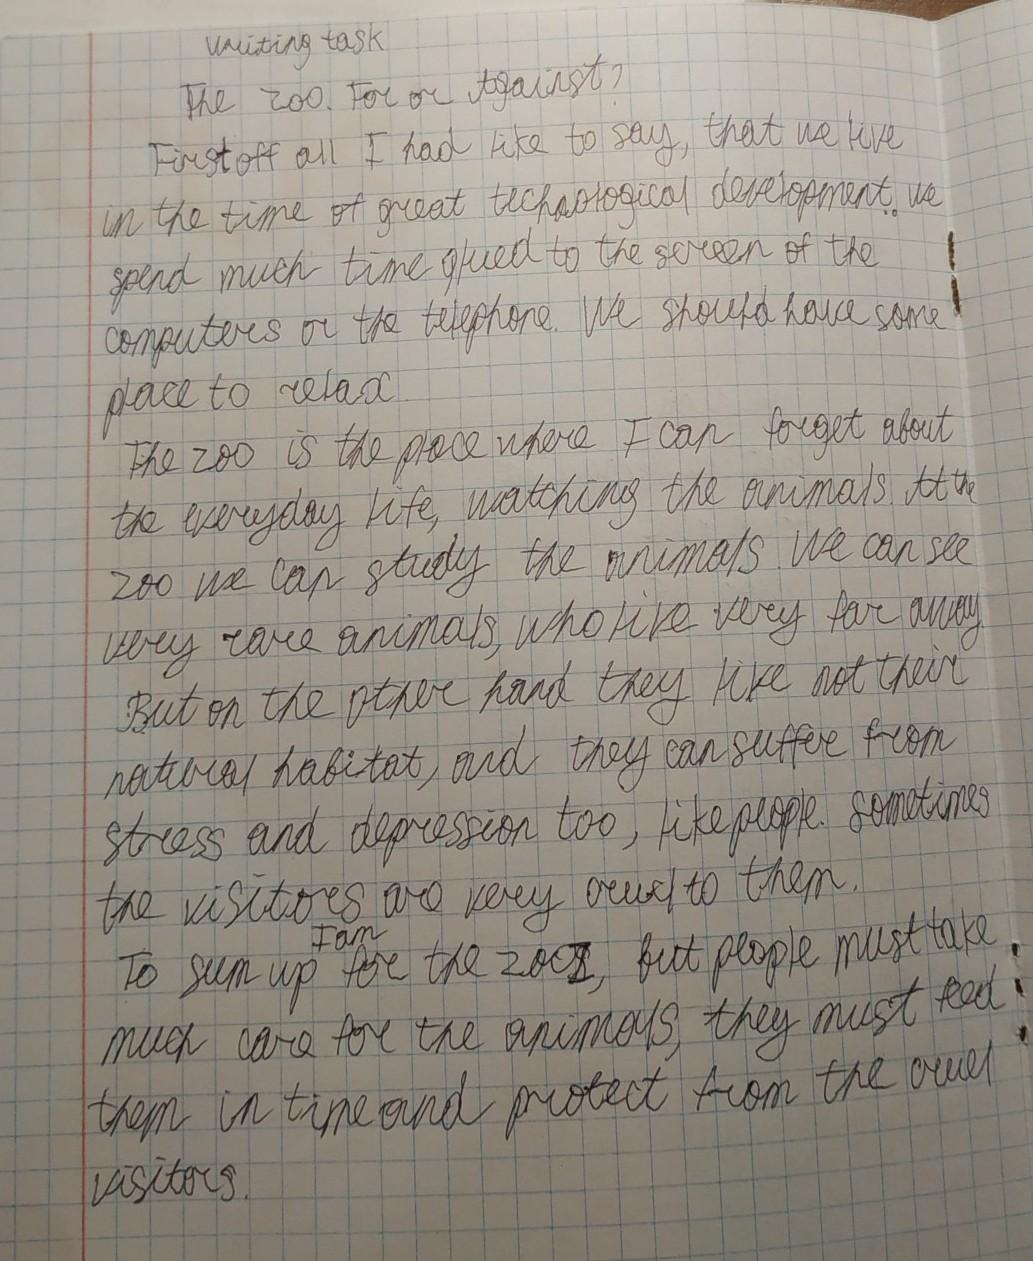 writing task
The zoo. For or Against?
First off all I had like to say, that we live
in the time of great technological development. we
spend much time glued to the screen of the
computers or the telephone. We should have some
place to relax
The zoo is the place where I can forget about
the everyday life, watching the animals. At the
zoo we can study the animals. We can see
very rare animals, who live very far away.
But on the other hand they live not their
natural habitat, and they can suffer from
stress and depression too, like people. sometimes
the visitors are very cruel to them.
I am
To sum up for the zoos, but people must take
much care for the animals, they must feed
them in time and protect from the cruel
visitors.